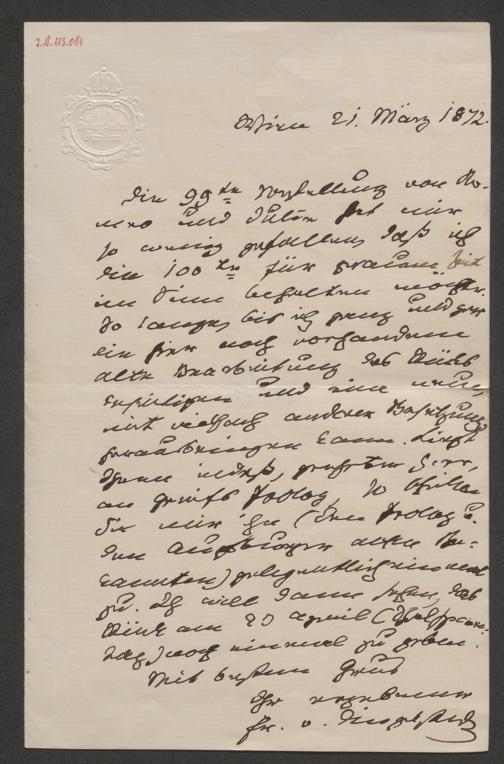 I.N. 113.084
Wien 21. März 1872.
Die 99te Vorstellung von Ro-
meo und Julia hat mir
so wenig gefallen, daß ich
die 100te für geraume Zeit
im Sinn behalten möchte.
So lange, bis ich ganz und gar
die hier noch vorhandene
alte Bearbeitung des Stücks
beseitigen und eine neue,
mit vielfach anderer Besetzung
herausbringen kann. Liegt
Ihnen indeß, geehrter Herr,
an Prolog, so schicken
Sie mir ihn (den Prolog u.
den alten Be-
kannten) gelegentlich einmal
zu. Ich will dann sehen, das
Stück am 23 April (Shakspeare-
tag) noch einmal zu geben.
Mit bestem Gruß
Ihr ergebener
Fr. v. Dingelstedt